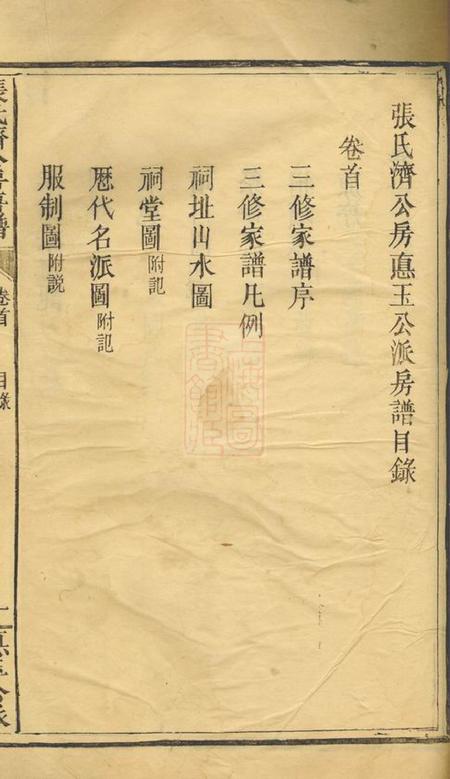 張氏濟公房惪玉公派房譜目錄
卷首
三修家譜序
三修家譜凡例
祠址山水圖
祠堂圖附記
歷代名派圖附記
服制圖附説
卷首 目錄